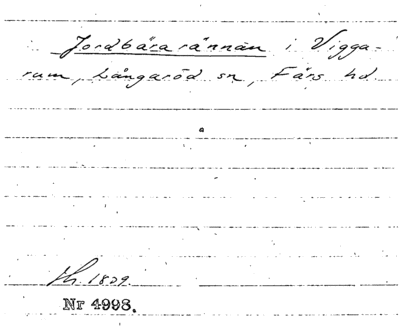 Jordbärarännan i Vigga-
rum, Långaröd sn, Färs hd.
1829.
Nr 4998.